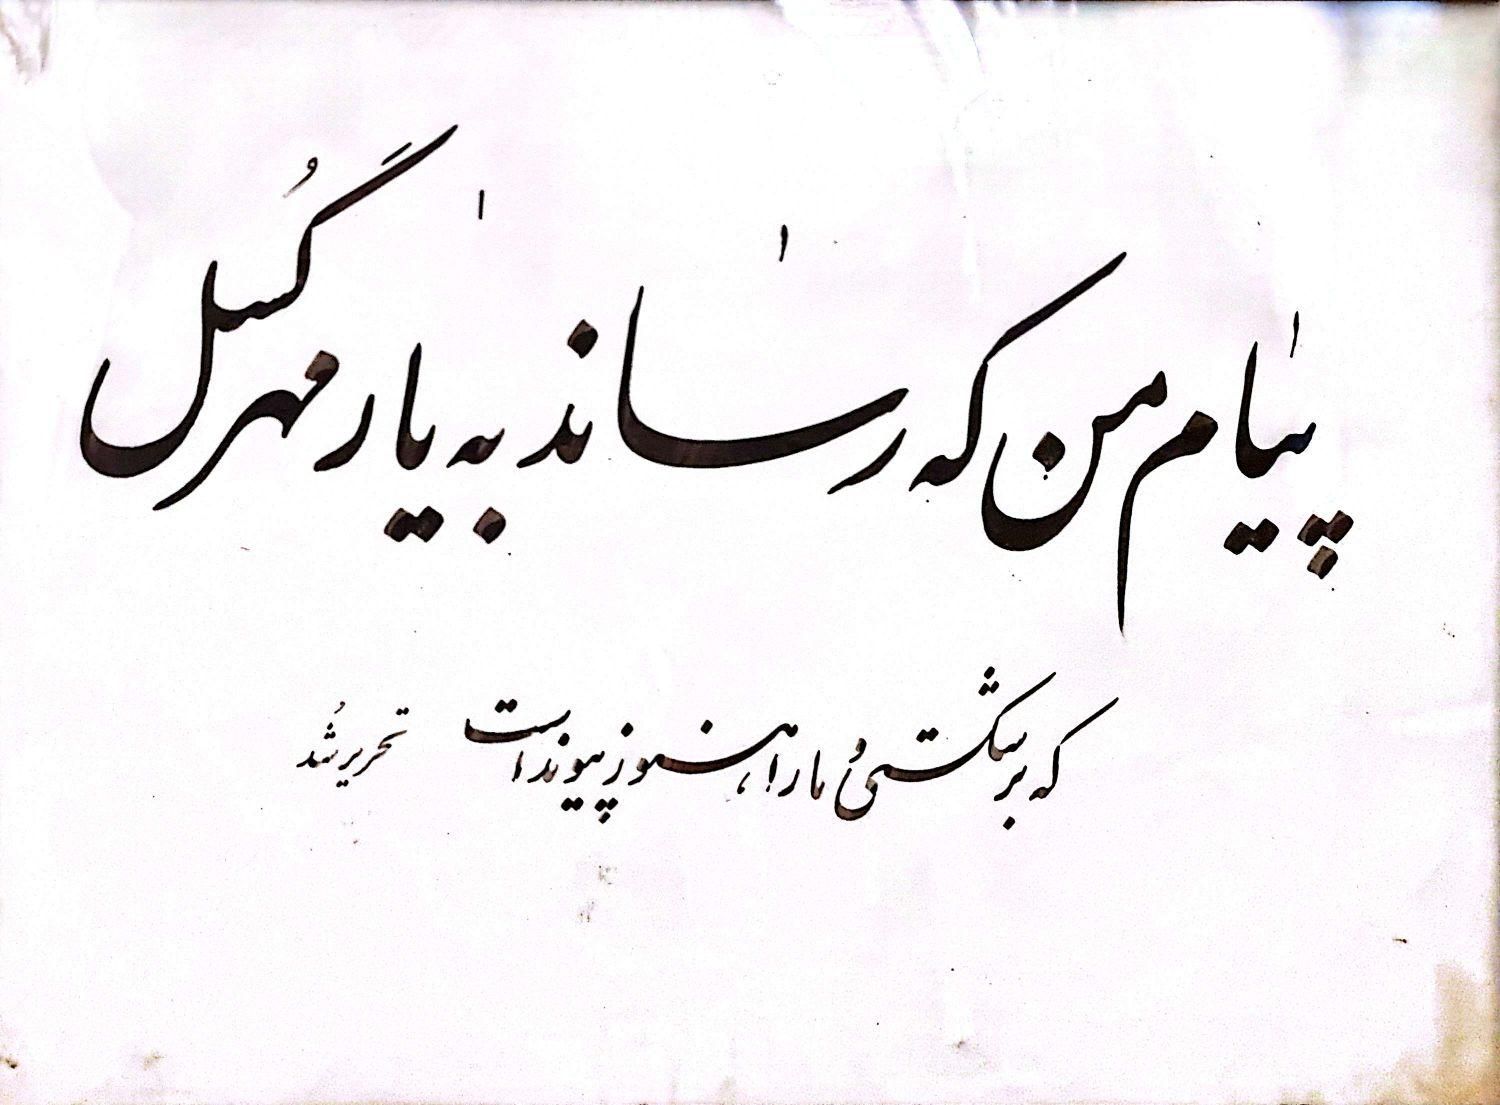 پیام من که رساند به یار مهرگُسل
که برشکستی و ما را هنوز پیوند است تحریر شُد